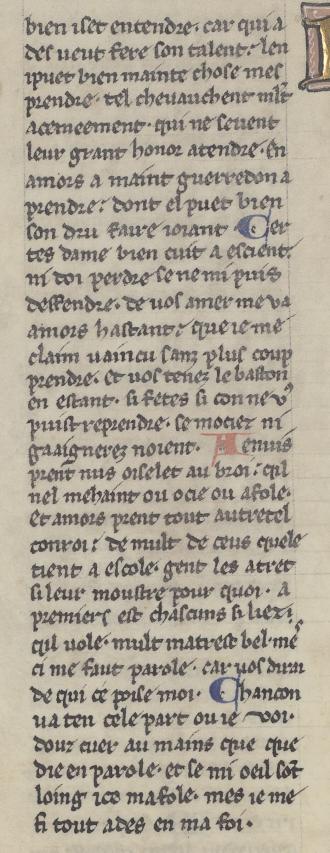 bien iset entendre· car qui a
des ueut fere son talent· len
ipuet bien mainte chose mes
prendre· tel cheuauchent mlt
acemeement· qui ne seuent
leur grant honor atendre· En
amors a maint guerredon a
prendre· dont el puet bien
son dru faire ioiant· Cer
tes dame bien cuit a escient·
ni doi perdre se ne mi puis
deffendre· de vos amer me va
amors hastant· que ie me
claim uaincu sanz plus coup
prendre· et vos tenez le baston
en estant· si fetes si con ne v9
puist reprendre· se mociez ni
graaignerez noient· A enuis
prent nus oiselet au broi· qil
nel mehaint ou ocie ou afole·
et amors prent tout autretel
conroi· de mult de ceus quele
tient a escole· gent les atret
si leur moustre pour quoi· a
premiers est chascuns si liez·
qil uole· mult matrest bel· mes
ci me faut parole· car uos
de qui ce poise moi· Chancon
ua ten cele part ou ie voi·
douz cuer au mains que que
die en parole· et se mi oeil sot
loing ice mafole· mes ie me
fi tout ades en ma foi·